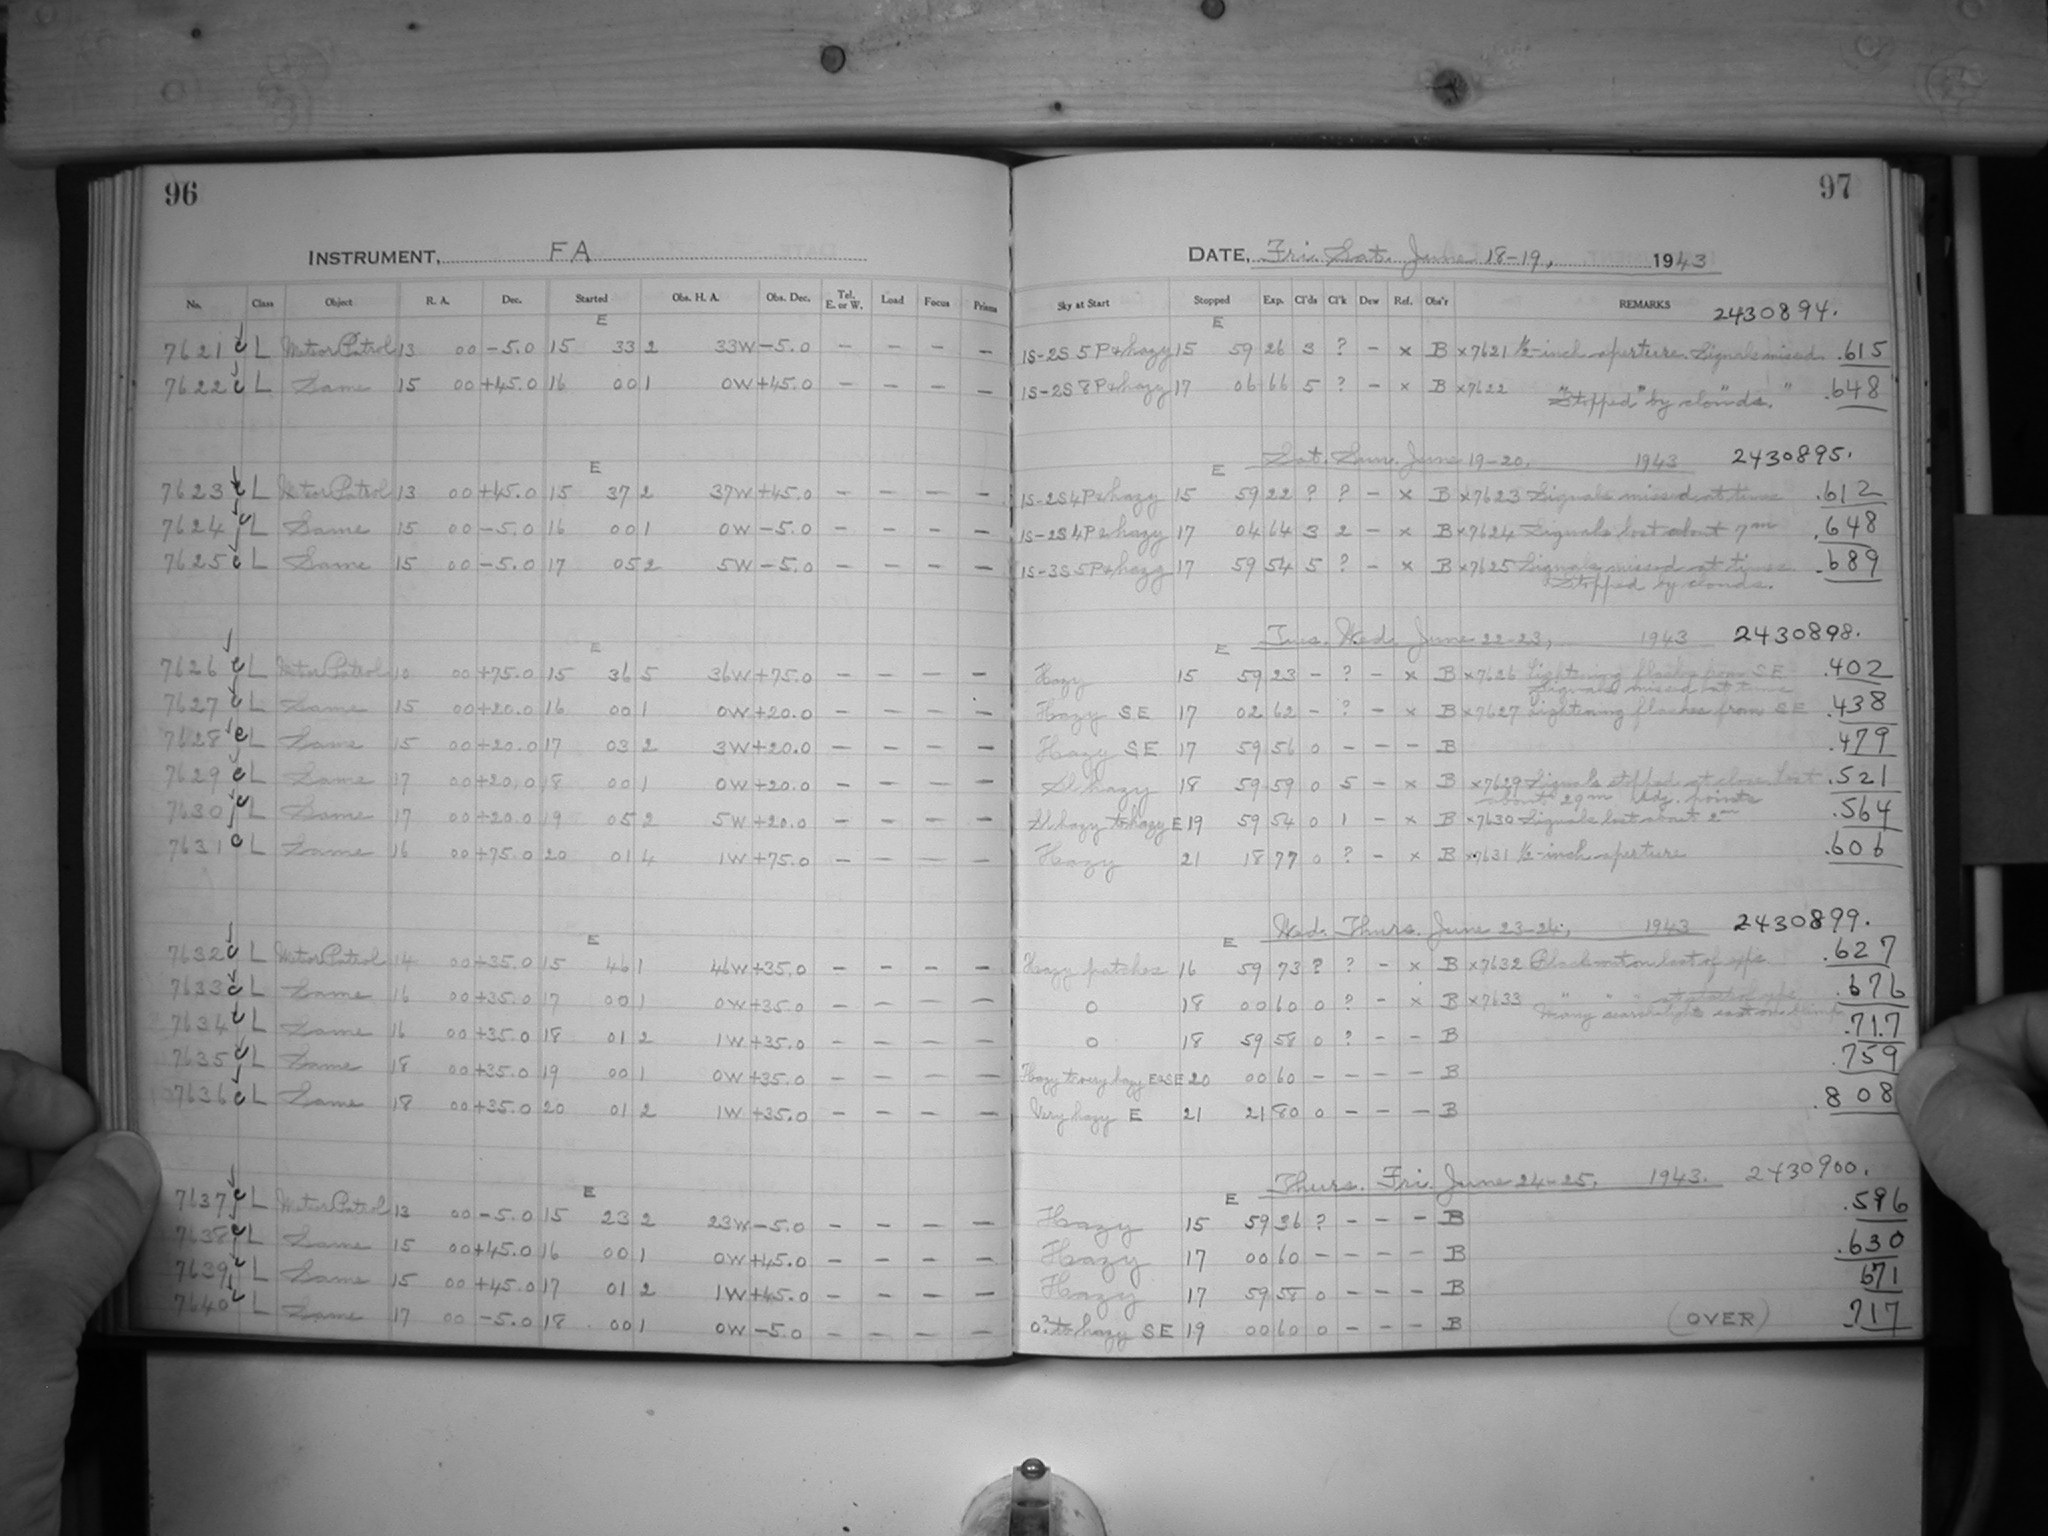 96
97
INSTRUMENT, FA
DATE, Fri. Sat. June 18-19, 1943
No. Class Object R. A. Dec. Started Obs. H. A. Obs. Dec. Tel. E. or W. Load Focus Prisms Sky at Start Stopped Exp. Cl'ds Cl'k Dew Ref. Obs'r REMARKS 2430894.
E E
7621 L Meteor Patrol 13 00 -5.0 15 33 2 33W -5.0 – – – – 1S-2S 5P & hazy 15 59 26 3 ? – x B x7621 ½-inch aperture. Signals missed .615
7622 L Same 15 00 +45.0 16 00 1 0W +45.0 – – – – 1S-2S 8P & hazy 17 06 66 5 ? – x B x7622 " " " .648
Stopped by clouds.
E E Sat. Sun. June 19-20, 1943 2430895.
7623 L Meteor Patrol 13 00 +45.0 15 37 2 37W +45.0 – – – – 1S-2S 4P & hazy 15 59 22 ? ? – x B x7623 Signals missed at times .612
7624 L Same 15 00 -5.0 16 00 1 0W -5.0 – – – – 1S-2S 4P & hazy 17 04 64 3 2 – x B x7624 Signals lost about 7m .648
7625 L Same 15 00 -5.0 17 05 2 5W -5.0 – – – – 1S-3S 5P & hazy 17 59 54 5 ? – x B x7625 Signals missed at times. .689
Stopped by clouds.
E E Tues. Wed. June 22-23, 1943 2430898.
7626 L Meteor Patrol 10 00 +75.0 15 36 5 36W +75.0 – – – – Hazy 15 59 23 – ? – x B x7626 Lightening flashes from SE .402
Signals missed at times
7627 L Same 15 00 +20.0 16 00 1 0W +20.0 – – – – Hazy SE 17 02 62 – ? – x B x7627 Lightening flashes from SE .438
7628 L Same 15 00 +20.0 17 03 2 3W +20.0 – – – – Hazy SE 17 59 56 0 – – – B .479
7629 L Same 17 00 +20.0 18 00 1 0W +20.0 – – – – Sl hazy 18 59 59 0 5 – x B x7629 Signals stopped at close. Lost .521
about 29m points
7630 L Same 17 00 +20.0 19 05 2 5W +20.0 – – – – Sl hazy to hazy E 19 59 54 0 1 – x B x7630 Signals lost about 2m .564
7631 L Same 16 00 +75.0 20 01 4 1W +75.0 – – – – Hazy 21 18 77 0 ? – x B x7631 ½-inch aperture .606
E E Wed. Thurs. June 23-24, 1943 2430899.
7632 L Meteor Patrol 14 00 +35.0 15 46 1 46W +35.0 – – – – Hazy patches 16 59 73 ? ? – x B x7632 Blackout on last of exp. .627
7633 L Same 16 00 +35.0 17 00 1 0W +35.0 – – – – 0 18 00 60 0 ? – x B x7633 " " " at start of exp. .676
Many searchlights east on
7634 L Same 16 00 +35.0 18 01 2 1W +35.0 – – – – 0 18 59 58 0 ? – – B .717
7635 L Same 18 00 +35.0 19 00 1 0W +35.0 – – – – Hazy to very hazy E & SE 20 00 60 – – – – B .759
7636 L Same 18 00 +35.0 20 01 2 1W +35.0 – – – – Very hazy E 21 21 80 0 – – – B .808
E E Thurs. Fri. June 24-25, 1943. 2430900.
7637 L Meteor Patrol 13 00 -5.0 15 23 2 23W -5.0 – – – – Hazy 15 59 36 ? – – – B .596
7638 L Same 15 00 +45.0 16 00 1 0W +45.0 – – – – Hazy 17 00 60 – – – – B .630
7639 L Same 15 00 +45.0 17 01 2 1W +45.0 – – – – Hazy 17 59 58 0 – – – B 671
7640 L Same 17 00 -5.0 18 00 1 0W -5.0 – – – – 0? to hazy SE 19 00 60 0 – – – B (OVER) .717